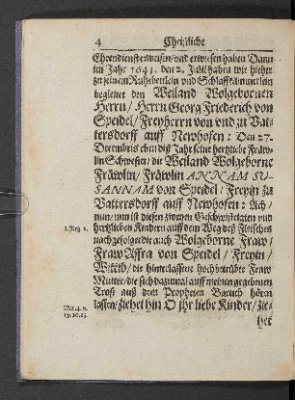 4 Christliche
Ehrendiensten weisen/ und erwiesen haben. Dann
im Jahr 1641. den 2. Julii haben wir hieher
zu seinem Ruhebettlein und Schlaffkämmerlein
begleitet den Weiland Wolgebornen
Herrn/ Herrn Georg Friederich von
Speidel/ Freyherrn von und zu Vat-
tersdorff auff Newhofen: Den 27.
Decembris eben diß Jahr seine hertzliebe Fraw-
lin Schwester/ die Weiland Wolgeborne
Fräwlin/ Fräwlin ANNAM SU-
SANNAM von Speidel/ Freyin zu
Vattersdorff auff Newhofen: Ach/
nun/ nun ist diesen zweyen Geschwistrigten und
hertzlieben Kindern auff dem Weg deß Fleisches
1. Reg. 2. nachgefolget die auch Wolgeborne Fraw/
Fraw Affra von Speidel/ Freyin/
Wittib/ die hinterlassene hochbetrübte Fraw
Mutter/ die sich dazumal auff meinen gegebenen
Trost auß dem Propheten Baruch hören
lassen/ ziehet hin O ihr liebe Kinder/ zie-
het